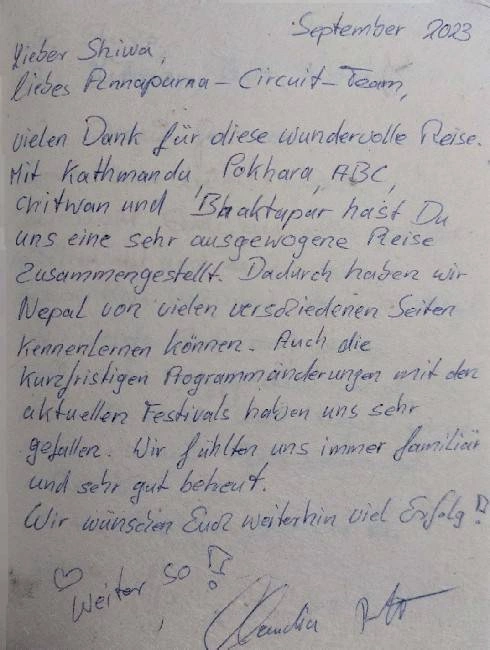 September 2023
Lieber Shiwa,
liebes Annapurna-Circuit-Team,
vielen Dank für diese wundervolle Reise.
Mit Kathmandu, Pokhara, ABC,
Chitwan und Bhaktapur hast Du
uns eine sehr ausgewogene Reise
zusammengestellt. Dadurch haben wir
Nepal von vielen verschiedenen Seiten
kennenlernen können. Auch die
kurzfristigen Programmänderungen mit den
aktuellen Festivals haben uns sehr
gefallen. Wir fühlten uns immer familiär
und sehr gut betreut.
Wir wünschen Euch weiterhin viel Erfolg!
♡ Weiter so!
Claudia